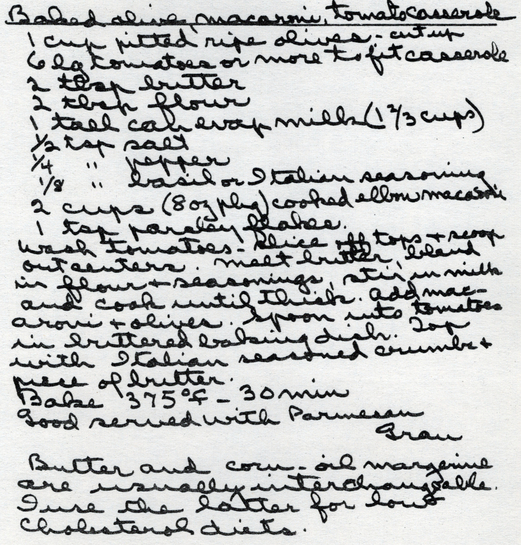 Baked olive, macaroni, tomato casserole
1 cup pitted ripe olives - cut up
6 lg tomatoes or more to fit casserole
2 tbsp butter
2 tbsp flour
1 tall can evap milk (1 2/3 cups)
1/2 tsp salt
1/4 " pepper
1/8 " basil or Italian seasoning
2 cups (8 oz pkg) cooked elbow macaroni
1 tsp parsley flakes.
Wash tomatoes - slice off tops + scoop
out centers. Melt butter, blend
in flour + seasonings, stir in milk
and cook until thick. Add mac-
aroni + olives. Spoon into tomatoes
in buttered baking dish. Top
with Italian seasoned crumbs +
piece of butter.
Bake 375°F - 30 min
Good served with Parmesan
Gran
Butter and corn-oil margerine
are usually interchangeable.
I use the latter for low
Cholesterol diets.